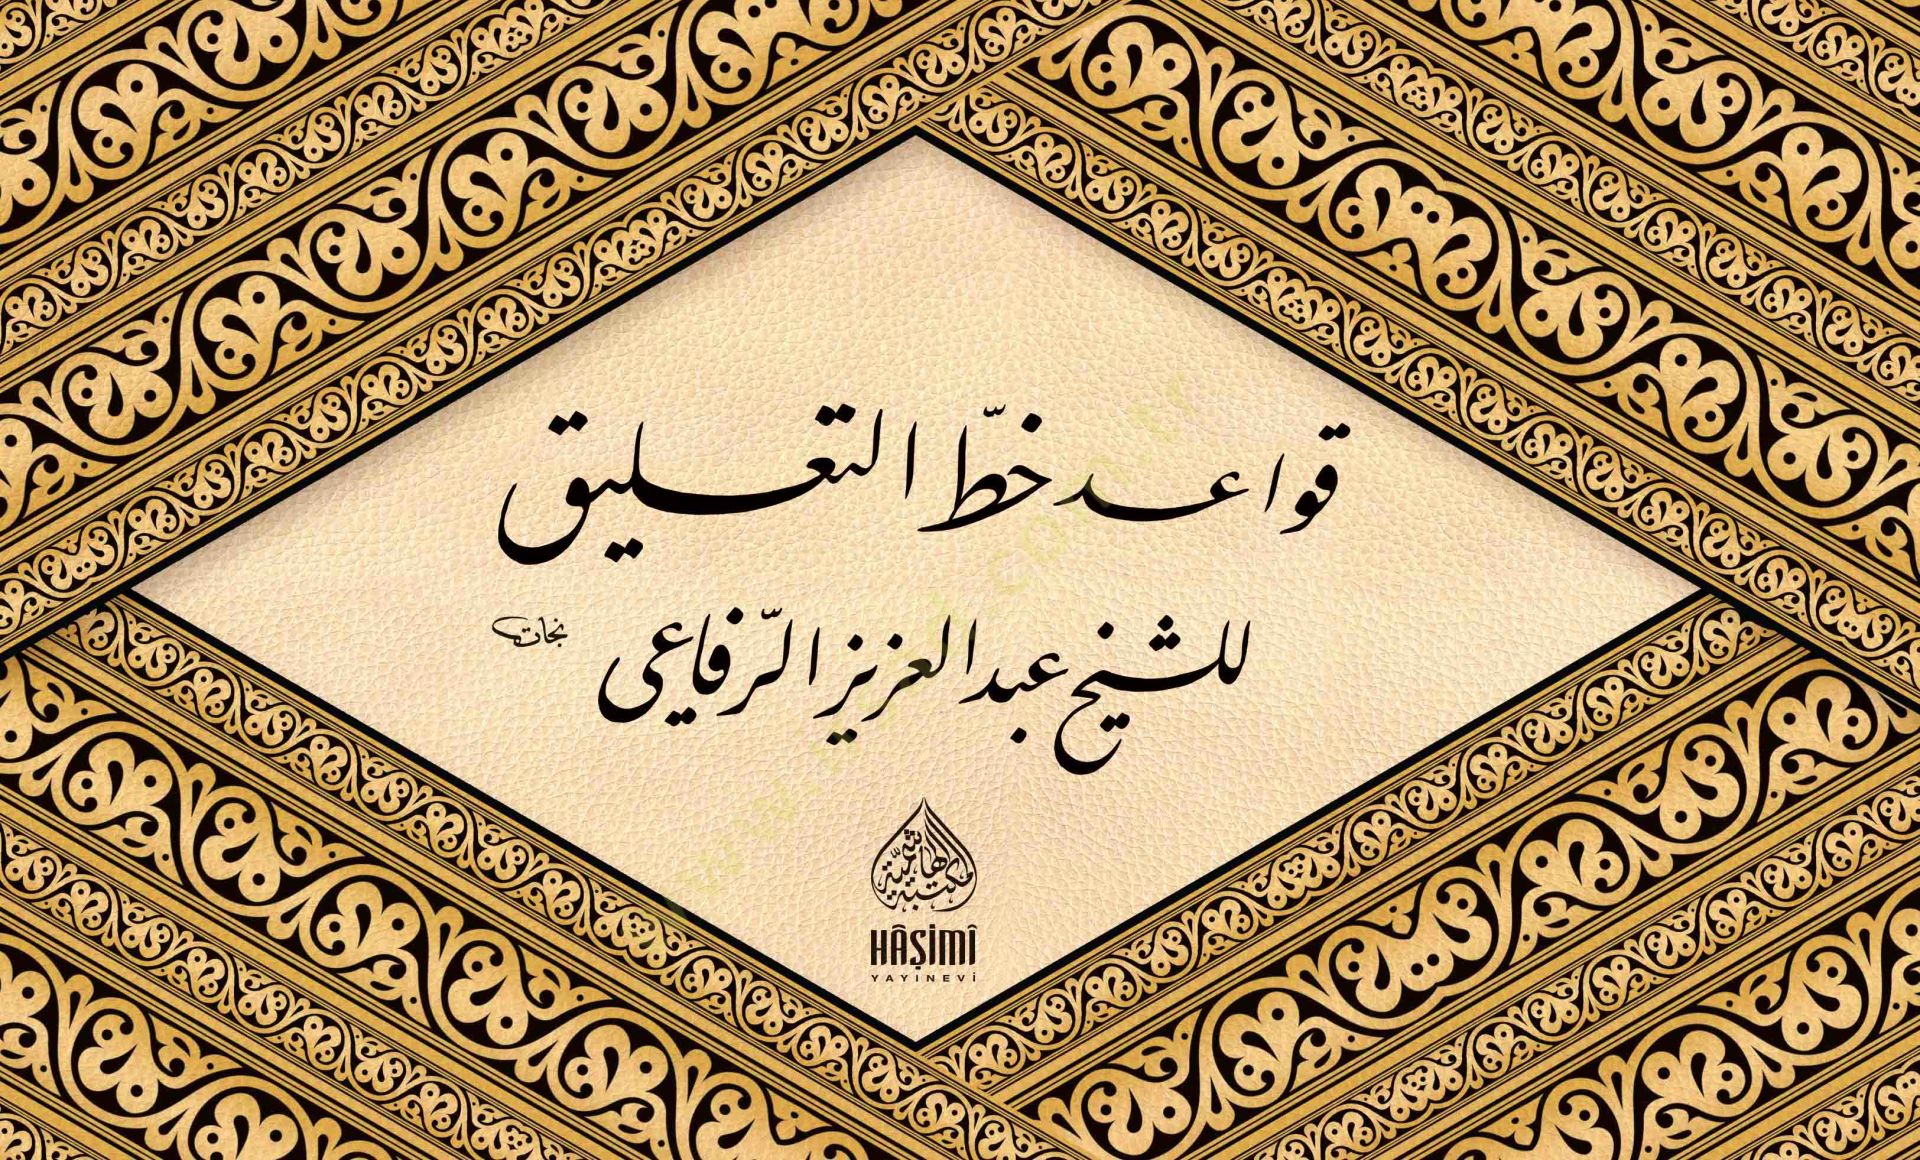 قواعد خطّ التعليق
للشيخ عبد العزيز الرّفاعي
مكتبة الهاشميّة
HÂŞİMÎ
YAYINEVİ